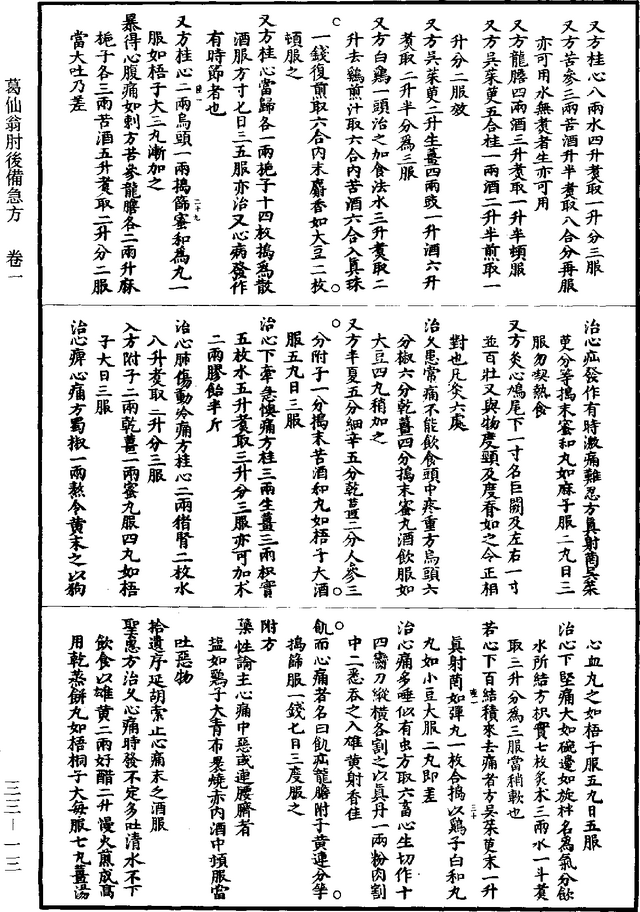 又方桂心八兩水四升煑取一升分三服
又方苦參三兩苦酒升半煑取八合分再服
亦可用水無煑者生亦可用
又方龍膽四兩酒三升煑取一升半頓服
又方吳茱萸五合桂一兩酒二升半煎取一
升分二服效
又方吳茱萸二升生薑四兩豉一升酒六升
煑取二升半分爲三服
又方白鷄一頭治之如食法水三升煑取二
升去鷄煎汁取六合內苦酒六合入眞珠
一錢復煎取六合內末麝香如大豆二枚
頓服之
又方桂心當歸各一兩梔子十四枚搗爲散
酒服方寸七日三五服亦治久心病發作
有時節者也
又方桂心二兩烏頭一兩搗篩蜜和爲丸一
服如梧子大三丸漸加之
暴得心腹痛如刺方苦參龍膽各二兩升麻
梔子各三兩苦酒五升煑取二升分二服
當大吐乃差
治心疝發作有時激痛難忍方眞射菵吳茱
萸分等搗末蜜和丸如麻子服二丸日三
服勿喫熱食
又方灸心鳩尾下一寸名巨闕及左右一寸
並百壯又與物度頸及度脊如之令正相
對也凡灸六處
治久患常痛不能飲食頭中疼重方烏頭六
分椒六分乾薑四分搗末蜜丸酒飲服如
大豆四丸稍加之
又方半夏五分細辛五分乾薑二分人參三
分附子一分搗末苦酒和丸如梧子大酒
服五丸日三服
治心下牽急懊痛方桂三兩生薑三兩枳實
五枚水五升煑取三升分三服亦可加术
二兩膠飴半斤
治心肺傷動冷痛方桂心二兩猪腎二枚水
八升煑取二升分三服
又方附子二兩乾薑一兩蜜丸服四丸如梧
子大日三服
治心痹心痛方蜀椒一兩熬令黄末之以狗
心血丸之如梧子服五丸日五服
治心下堅痛大如碗邊如旋柈名爲氣分飲
水所結方枳實七枚炙术三兩水一斗煑
取三升分爲三服當稍軟也
若心下百結積來去痛者方吳茱萸末一升
眞射菵如彈丸一枚合搗以鷄子白和丸
丸如小豆大服二丸即差
治心痛多唾似有虫方取六畜心生切作十
四臠刀縱横各割之以眞丹一兩粉肉割
中旦悉吞之入雄黄射香佳
飢而心痛者名曰飢疝龍膽附子黄連分等
搗篩服一錢七日三度服之
附方
藥性論主心痛中惡或連腰臍者
鹽如鷄子大青布裹燒赤內酒中頓服當
吐惡物
拾遺序延胡索止心痛末之酒服
聖惠方治久心痛時發不定多吐清水不下
飲食以雄黄二兩好醋二升慢火煎成膏
用乾蒸餅丸如梧桐子大每服七丸薑湯
葛仙翁肘後備急方 卷一
三三－一三